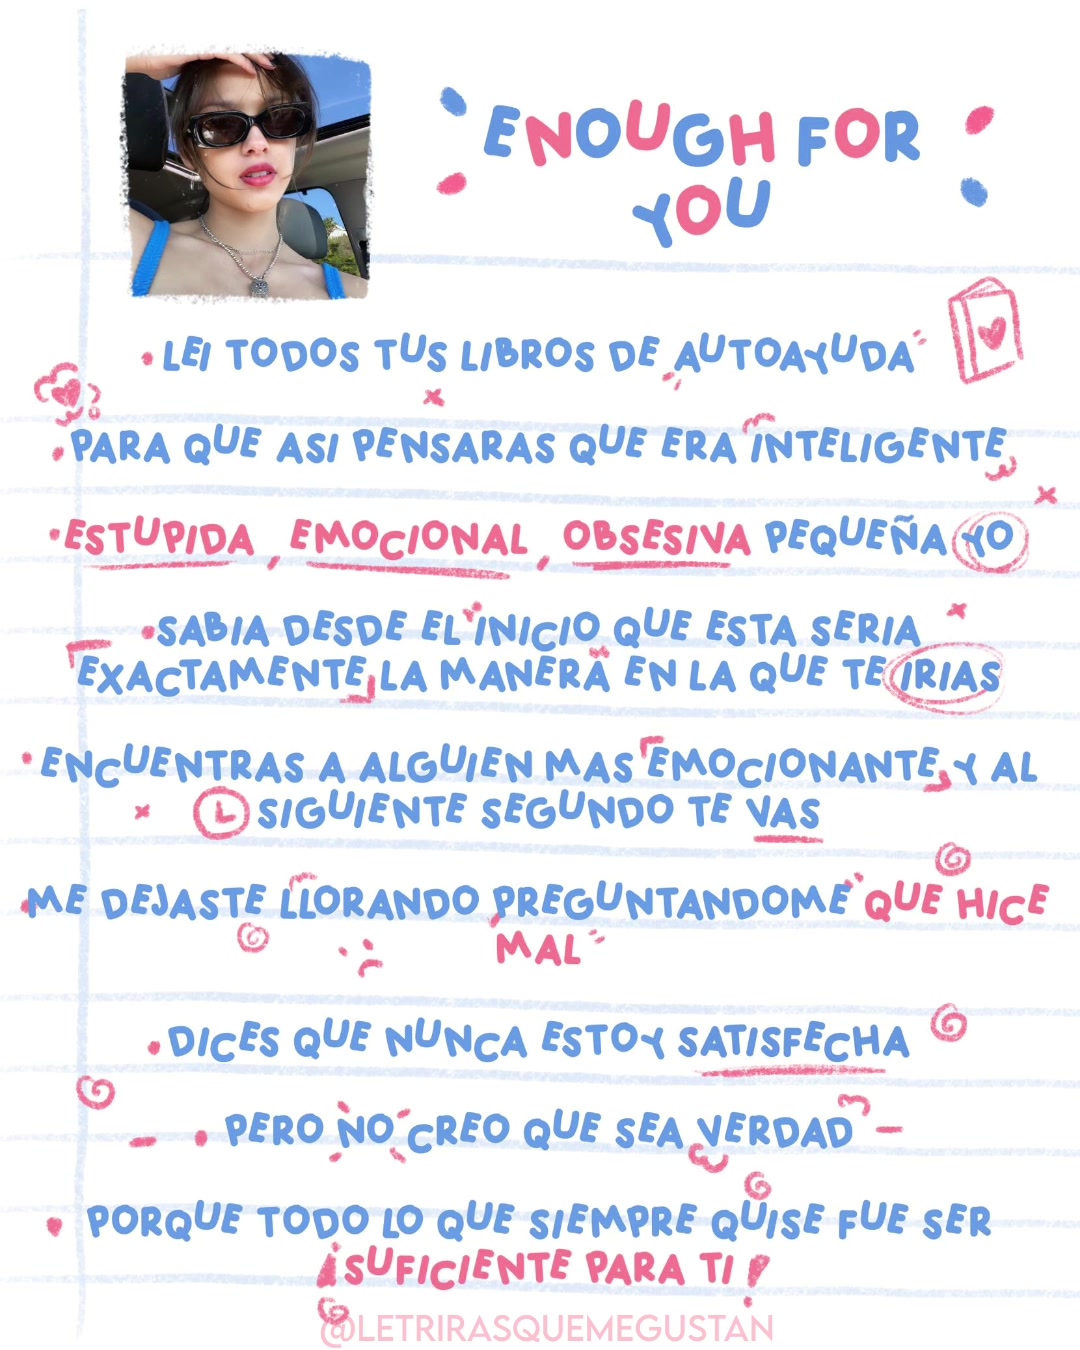 ENOUGH FOR
YOU
LEI TODOS TUS LIBROS DE AUTOAYUDA
PARA QUE ASI PENSARAS QUE ERA INTELIGENTE
ESTUPIDA, EMOCIONAL, OBSESIVA PEQUEÑA YO
SABIA DESDE EL INICIO QUE ESTA SERIA
EXACTAMENTE LA MANERA EN LA QUE TE IRIAS
ENCUENTRAS A ALGUIEN MAS EMOCIONANTE Y AL
SIGUIENTE SEGUNDO TE VAS
ME DEJASTE LLORANDO PREGUNTANDOME "QUE HICE
MAL"
DICES QUE NUNCA ESTOY SATISFECHA
PERO NO CREO QUE SEA VERDAD
PORQUE TODO LO QUE SIEMPRE QUISE FUE SER
¡SUFICIENTE PARA TI!
@LETRIRASQUEMEGUSTAN